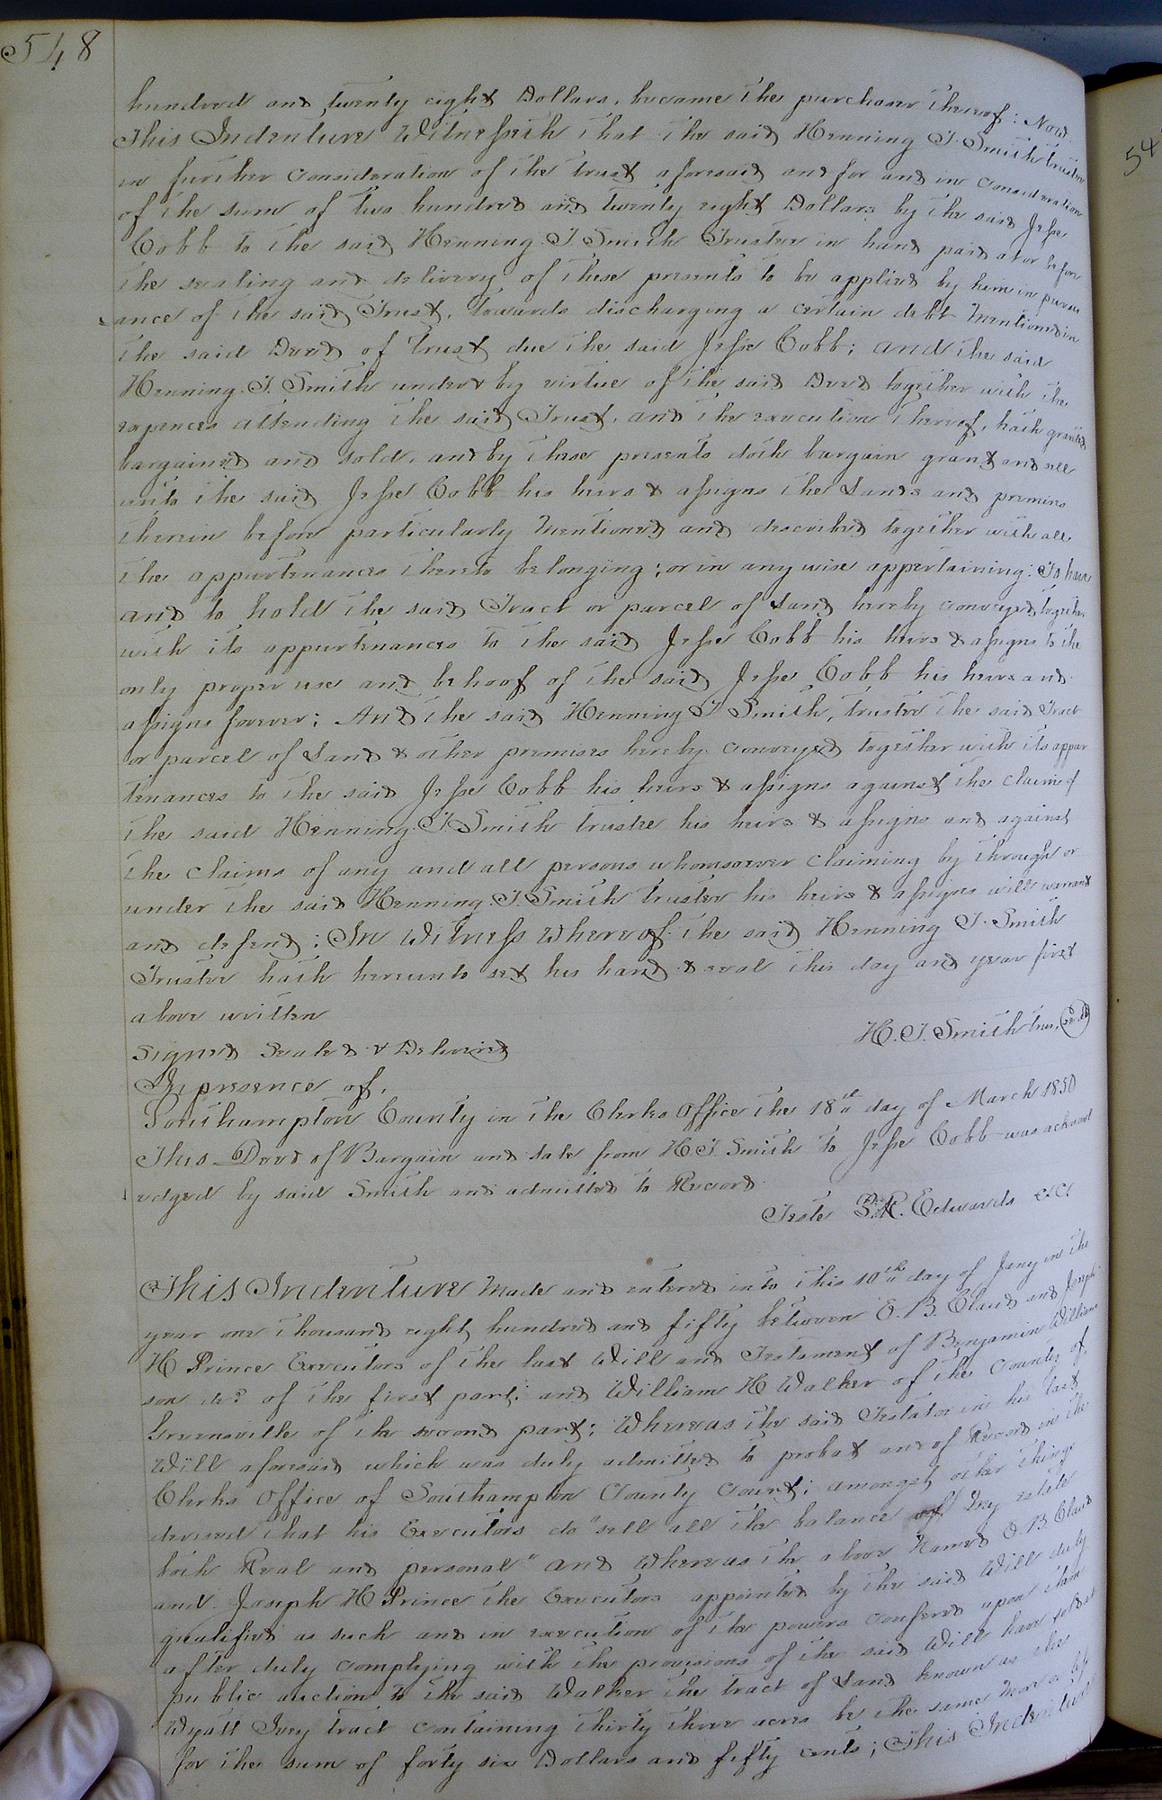 548
hundred and twenty eight Dollars, became the purchaser thereof: Now
This Indenture Witnesseth that the said Henning T. Smith trustee
in further consideration of the trust aforesaid and for and in consideration
of the sum of two hundred and twenty eight Dollars by the said Jesse
Cobb to the said Henning T. Smith Trustee in hand paid at or before
the sealing and delivery of these presents to be applied by him in pursu
ance of the said Trust, towards discharging a certain debt mentioned in
the said Deed of Trust due the said Jesse Cobb; and the said
Henning T. Smith under & by virtue of the said Deed together with the
expences attending the said Trust, and the execution thereof, hath granted
bargained and sold, and by these presents doth bargain grant and sell
unto the said Jesse Cobb his heirs & assigns the Lands and premises
therein before particularly mentioned and described together with all
the appurtenances thereto belonging; or in any wise appertaining: To have
and to hold the said Tract or parcel of Land hereby conveyed together
with its appurtenances to the said Jesse Cobb his heirs & assigns to the
only proper use and behoof of the said Jesse Cobb his heirs and
assigns forever; And the said Henning T Smith, trustee the said Tract
or parcel of Land & other premises hereby conveyed together with its appur
tenances to the said Jesse Cobb his heirs & assigns against the claim of
the said Henning T Smith trustee his heirs & assigns and against
the claims of any and all persons whomsoever claiming by through or
under the said Henning T. Smith trustee his heirs & assigns will warrant
and defend; In Witness Whereof the said Henning T. Smith
Trustee hath hereunto set his hand & seal this day and year first
above written
H. T. Smith trus,
Signed Sealed & Delivered
In presence of,
Southampton County in the Clerks Office the 18th day of March 1850
This Deed of Bargain and Sale from H T. Smith to Jesse Cobb was acknowl
edged by said Smith and admitted to Record
Teste L. R. Edwards
This Indenture Made and entered into this 10th day of Jany in the
year one thousand eight hundred and fifty between E. B. Claud and Joseph
H Prince Executors of the last Will and Testament of Benjamin William
son decd of the first part: and William H Walker of the County of
Greensville of the second part: Whereas the said Testator in his last
Will aforesaid which was duly admitted to probat and of Record in the
Clerks Office of Southampton County Court; amongst other things
devised that his Executors do "sell all the balance of my estate
both Real and personal" and whereas the above Named E. B. Claud
and Joseph H Prince the Executors appointed by the said Will duly
qualified as such and in execution of the powers conferred upon them
after duly complying with the provisions of the said Will have sold at
public auction to the said Walker the tract of Land known as the
Wyatt Ivey tract containing thirty three acres be the same more or less
for the sum of forty six Dollars and fifty cents; This Indenture
54